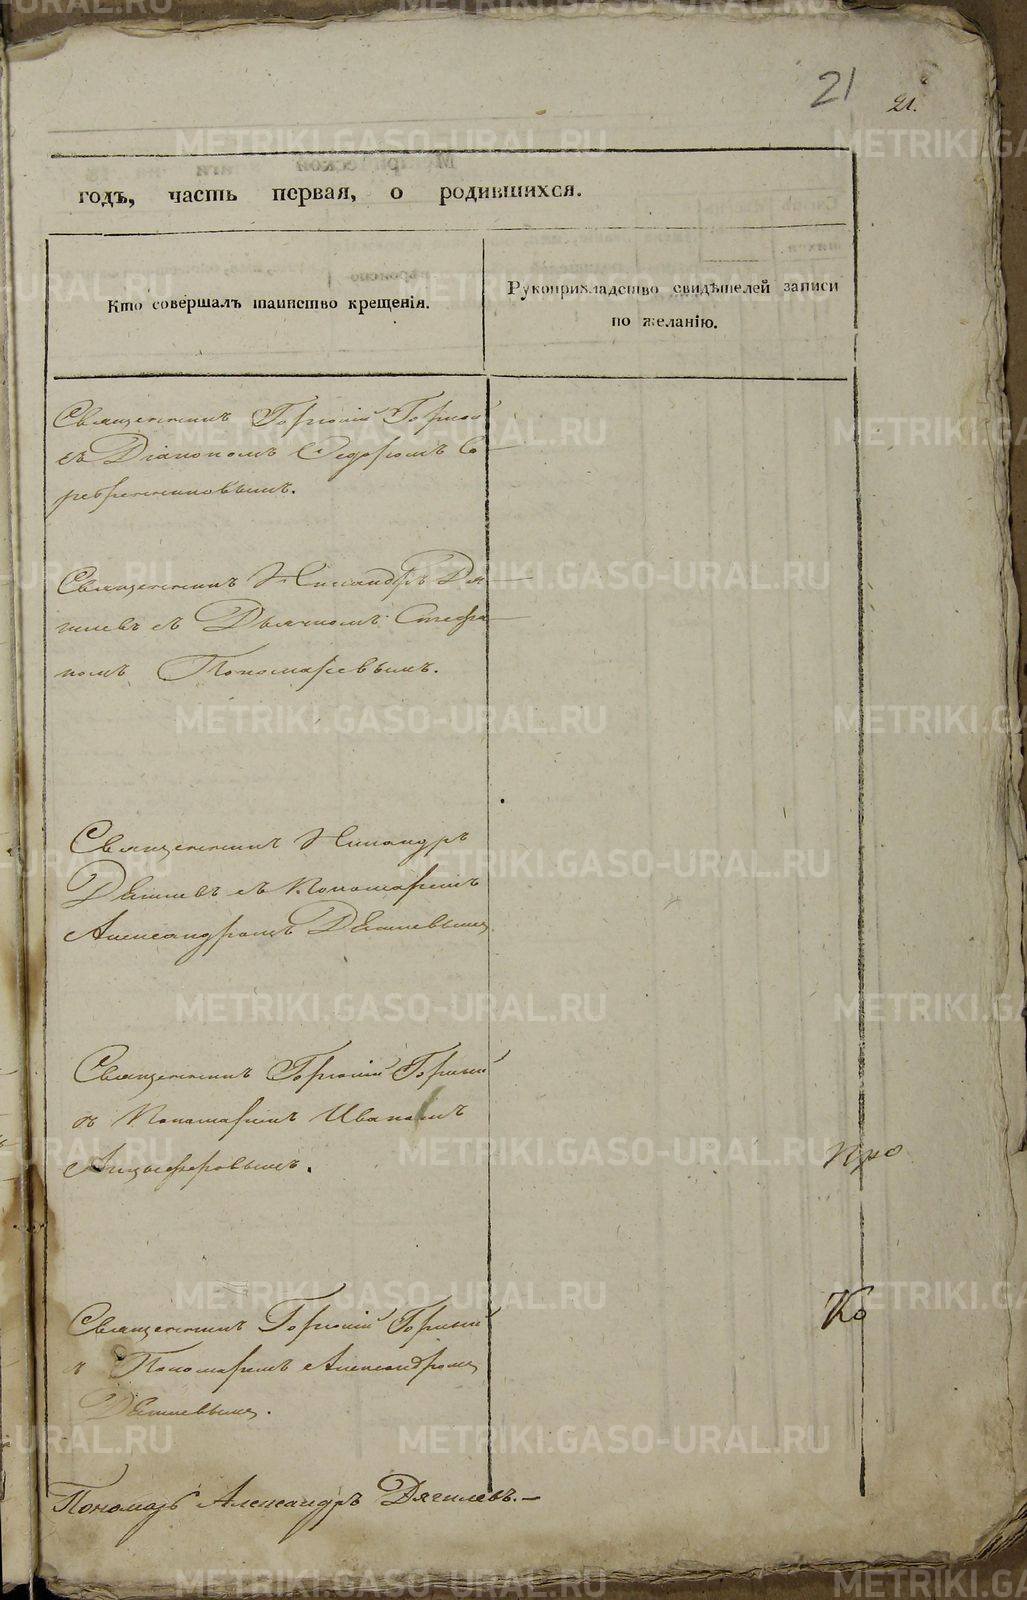 21
21.
годъ, часть первая, о родившихся.
Кто совершалъ таинство крещенія.
Рукоприкладство свидѣтелей записи
по желанію.
Священникъ Георгій Горный
съ Діакономъ Ѳедоромъ Се
ребренниковымъ.
Священникъ Никандръ Дя
гилевъ съ Дьячкомъ Стефа
номъ Пономаревымъ.
Священникъ Никандръ
Дягилевъ съ Пономаремъ
Александромъ Дягилевымъ
Священникъ Георгій Горный
съ Пономаремъ Иваномъ
Анцыферовымъ.
Про
Священникъ Георгій Горный
Ко
съ Пономаремъ Александромъ
Дягилевымъ.
Пономарь Александръ Дягилевъ.
METRIKI.GASO-URAL.RU